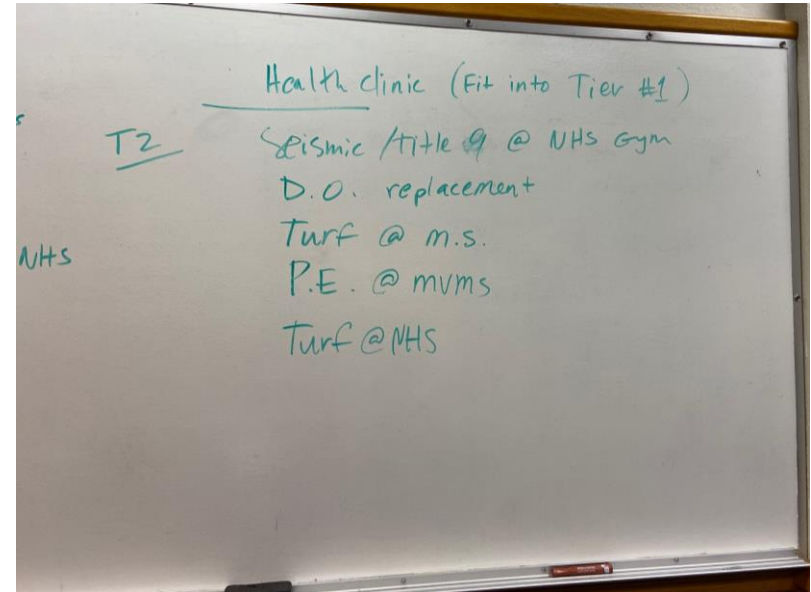 Health clinic (Fit into Tier #1)
s
T2 Seismic /title 9 @ NHS Gym
D.O. replacement
Turf @ m.s.
NHS
P.E. @ mvms
Turf @ NHS